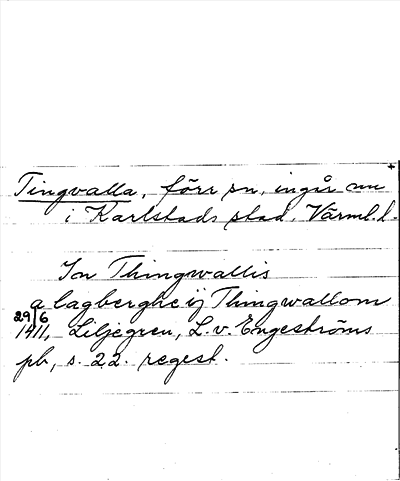 Tingvalla, förr sn, ingår nu
i Karlstads stad, Värml. l.
Jn Thingwallis
a lagberghe ij Thingwallom
29/6 1411, Liljegren, L. v. Engeströms
pb, s. 22. regest.